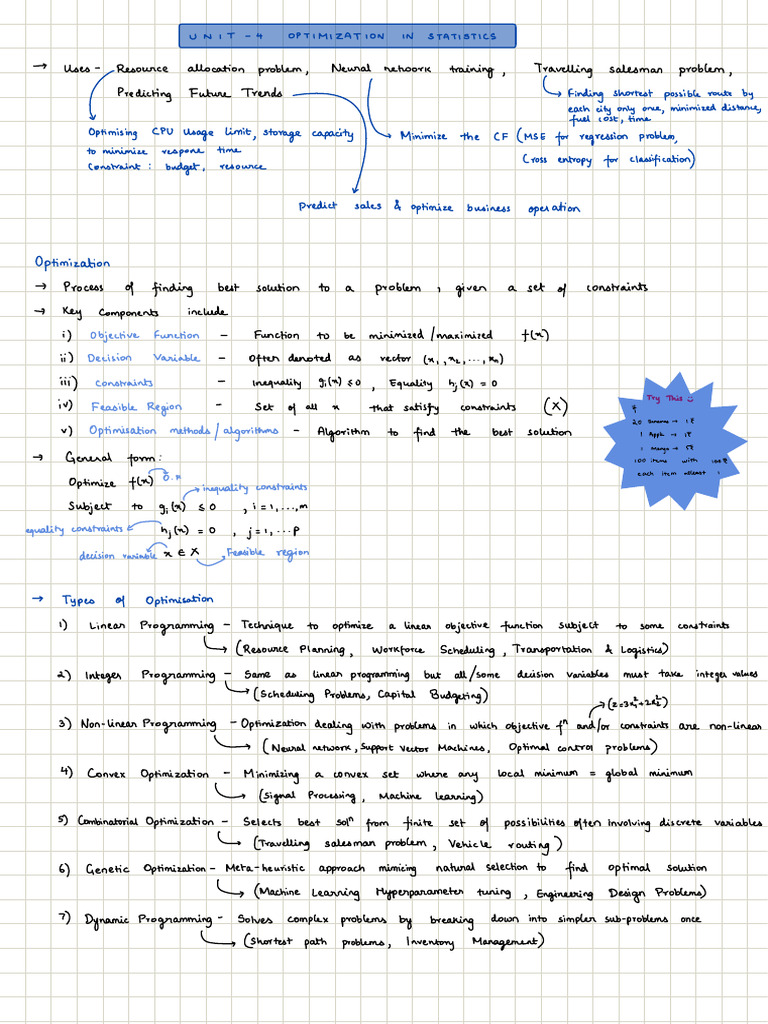 UNIT - 4 OPTIMIZATION IN STATISTICS
→ Uses - Resource allocation problem, Neural network training, Travelling salesman problem,
Predicting Future Trends
Finding shortest possible route by
each city only one, minimized distance,
fuel cost, time
Optimising CPU Usage limit, storage capacity
to minimize respone time
Constraint : budget, resource
Minimize the CF (MSE for regression problem,
Cross entropy for classification)
Predict sales & optimize business operation
Optimization
→ Process of finding best solution to a problem, given a set of constraints
→ Key Components include
i) Objective Function - Function to be minimized/maximized f(x)
ii) Decision Variable - Often denoted as vector (x₁, x₂, ..., xₙ)
iii) Constraints - Inequality gᵢ(x) ≤ 0, Equality hⱼ(x) = 0
iv) Feasible Region - Set of all x that satisfy constraints (X)
v) Optimisation methods/algorithms - Algorithm to find the best solution
Try This
20 Banana → 1₹
1 Apple → 1₹
1 Mango → 5₹
100 items with 100₹
each item atleast 1
→ General form:
Optimize f(x) O.F
inequality constraints
Subject to gᵢ(x) ≤ 0 , i = 1, ..., m
equality constraints hⱼ(x) = 0 , j = 1, ... p
decision variable x ∈ X Feasible region
→ Types of Optimisation
1) Linear Programming - Technique to optimize a linear objective function subject to some constraints
(Resource Planning, Workforce Scheduling, Transportation & Logistics)
2) Integer Programming - Same as linear programming but all/some decision variables must take integer values
(Scheduling Problems, Capital Budgeting)
(z = 3x₁² + 2x₂²)
3) Non-linear Programming - Optimization dealing with problems in which objective fⁿ and/or constraints are non-linear
(Neural network, Support Vector Machines, Optimal control problems)
4) Convex Optimization - Minimizing a convex set where any local minimum = global minimum
(Signal Processing, Machine learning)
5) Combinatorial Optimization - Selects best solⁿ from finite set of possibilities often involving discrete variables
(Travelling salesman problem, Vehicle routing)
6) Genetic Optimization - Meta-heuristic approach mimicing natural selection to find optimal solution
(Machine Learning Hyperparameter tuning, Engineering Design Problems)
7) Dynamic Programming - Solves complex problems by breaking down into simpler sub-problems once
(Shortest path problems, Inventory Management)